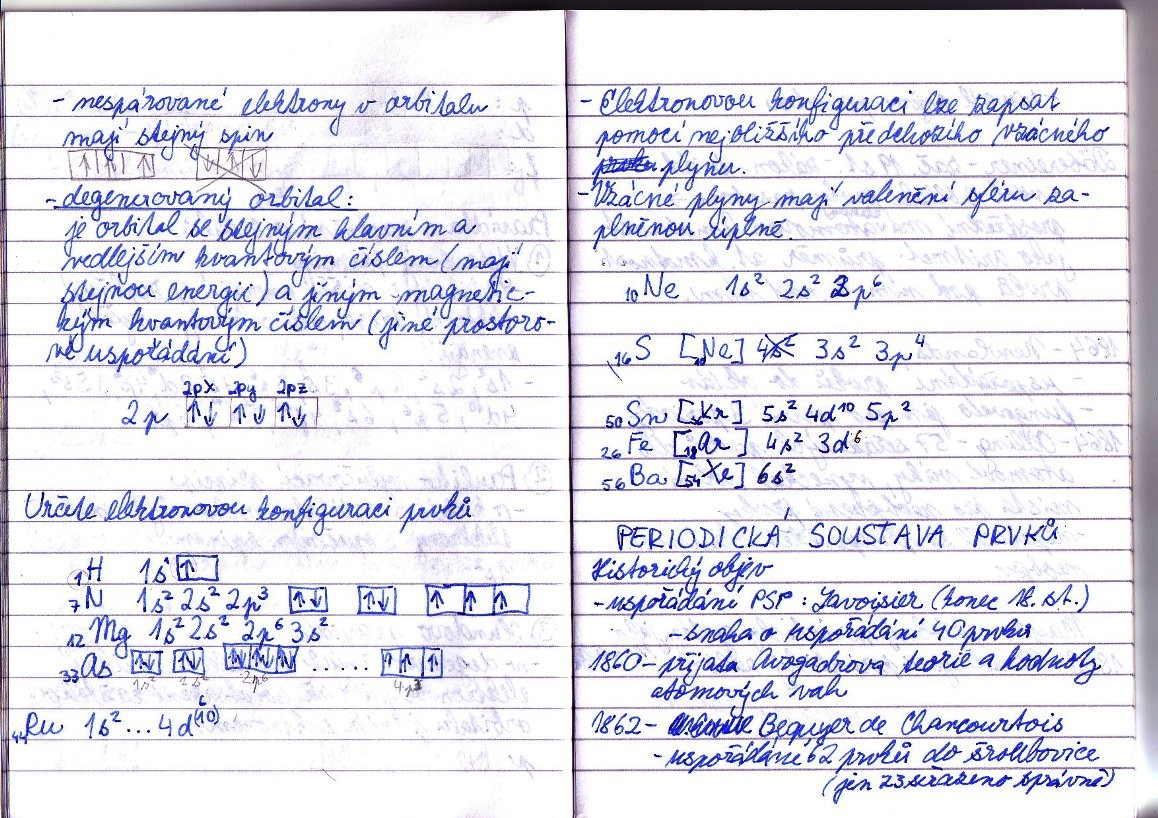 - nespárované elektrony v orbitalu
mají stejný spin
- degenerovaný orbital:
je orbital se stejným hlavním a
vedlejším kvantovým číslem (mají
stejnou energii) a jiným magnetic-
kým kvantovým číslem (jiné prostoro-
vé uspořádání)
2px 2py 2pz
2p ↑↓ ↑↓ ↑↓
Určete elektronovou konfiguraci prvků
1H 1s¹ ↑
7N 1s² 2s² 2p³ ↑↓ ↑↓ ↑ ↑ ↑
12Mg 1s² 2s² 2p⁶ 3s²
33As ↑↓ ↑↓ ↑↓ ↑↓ ↑↓ ...... ↑ ↑ ↑
1s² 2s² 2p⁶ 4p³
44Ru 1s² ... 4d
- Elektronovou konfiguraci lze zapsat
pomocí nejbližšího předchozího vzácného
plynu.
- Vzácné plyny mají valenční sféru za-
plněnou úplně.
10Ne 1s² 2s² 2p⁶
16S [10Ne] 3s² 3p⁴
50Sn [36Kr] 5s² 4d¹⁰ 5p²
26Fe [18Ar] 4s² 3d⁶
56Ba [54Xe] 6s²
PERIODICKÁ SOUSTAVA PRVKŮ
Historický objev
- uspořádání PSP: Lavoisier (konec 18. st.)
- snaha o uspořádání 40 prvků
1860 - přijata Avogadrova teorie a hodnoty
atomových vah
1862 - Beguyer de Chancourtois
- uspořádání 62 prvků do šroubovice
(jen 23 seřazeno správně)